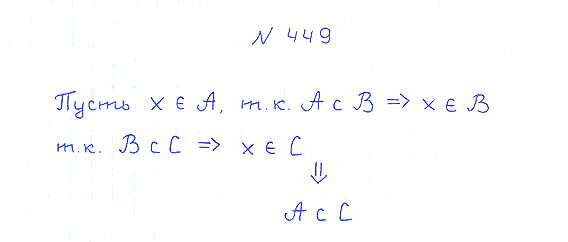 N 449
Пусть x ∈ A, т.к. A ⊂ B => x ∈ B
т.к. B ⊂ C => x ∈ C
⇓
A ⊂ C